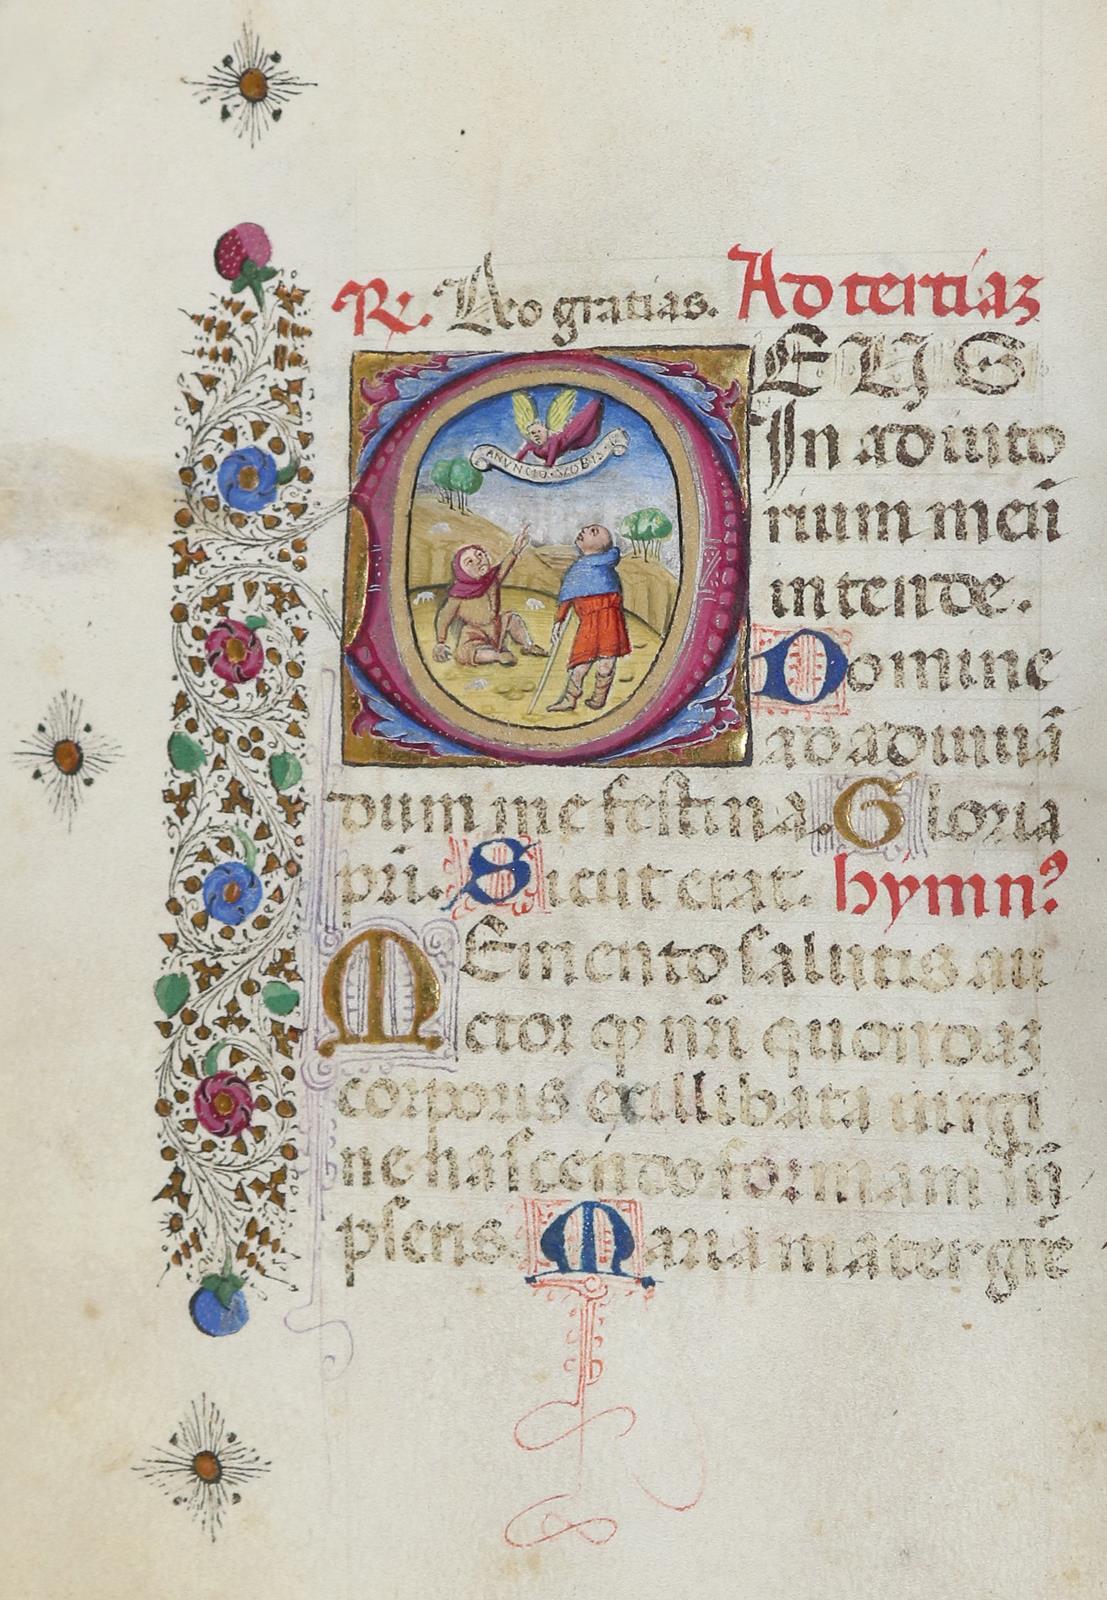 R. Deo gratias. Ad tertiaz
EUS
ANVNCIO · VOBIS ·
In adiuto
rium meū
intende.
Domine
ad adiuuā
dum me festina. Gloria
pri. Sicut erat. hymn9
Memento salutis au
ctor qp nri quondaz
corporis ex illibata uirgi
ne nascendo formam
psens. Maria mater grē